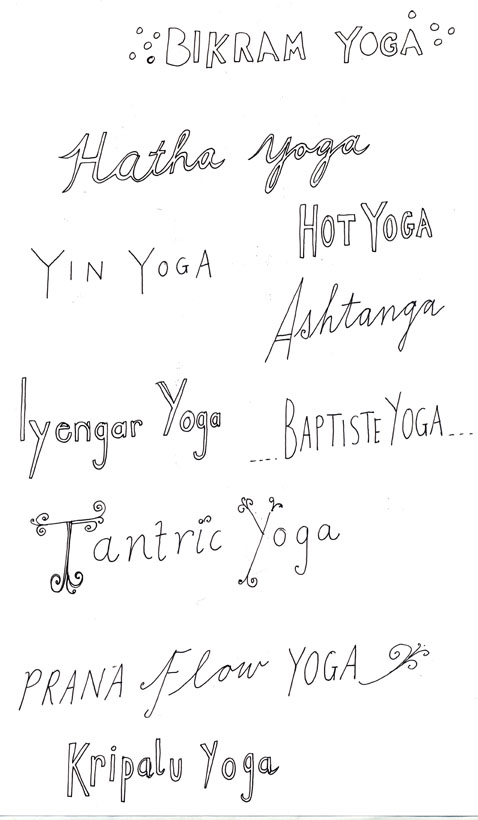 BIKRAM YOGA
Hatha yoga
HOT YOGA
YIN YOGA
Ashtanga
Iyengar Yoga
BAPTISTE YOGA
Tantric Yoga
PRANA Flow YOGA
Kripalu Yoga